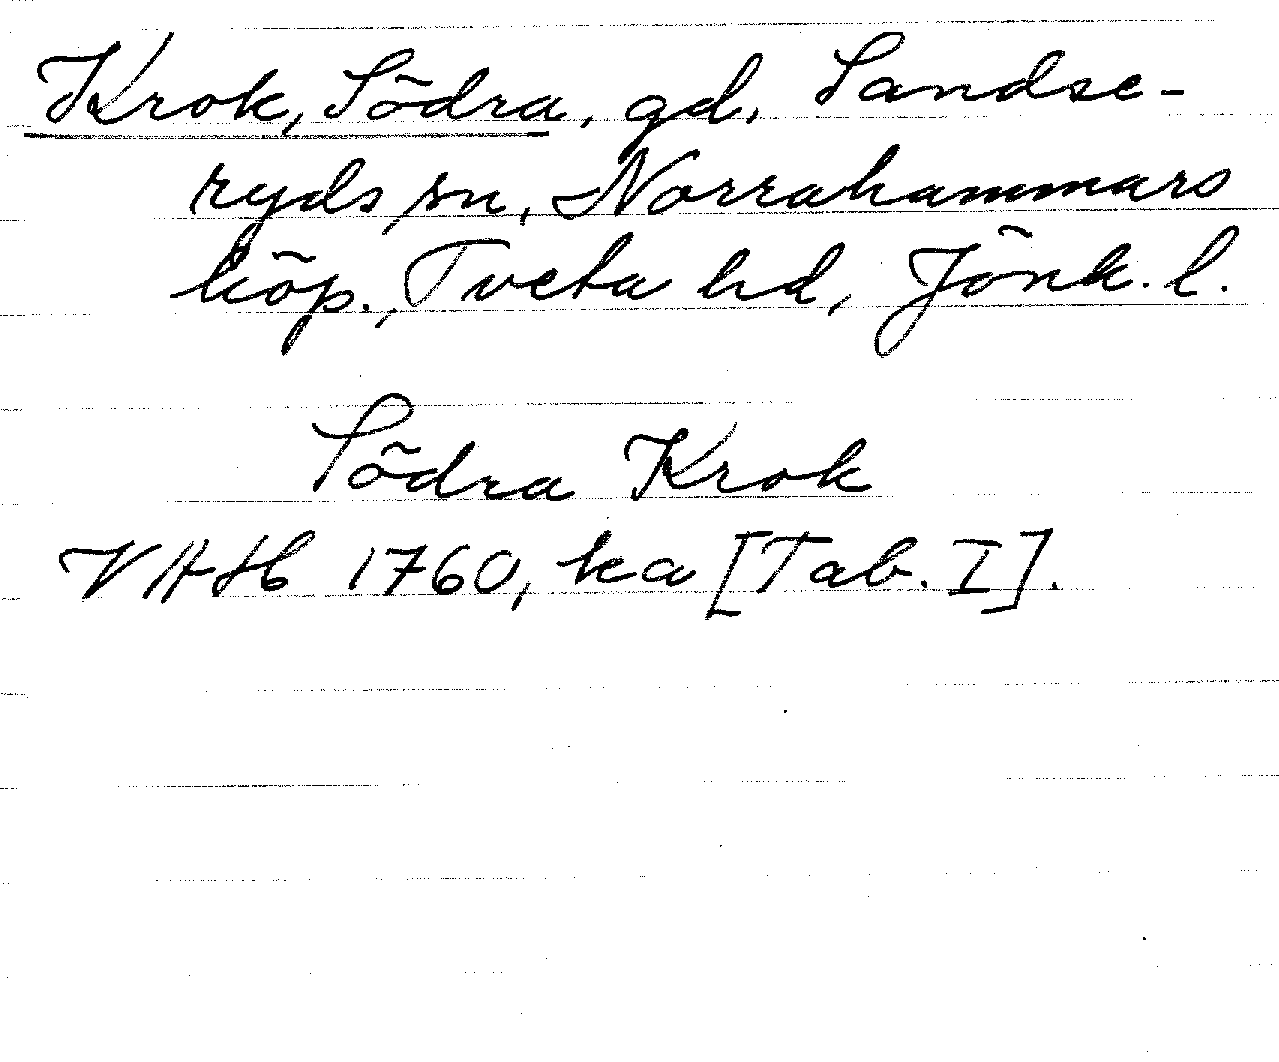 Krok, Södra, gd, Sandse-
ryds sn, Norrahammars
köp., Tveta hd, Jönk. l.
Södra Krok
VAH 1760, ka [Tab. I].